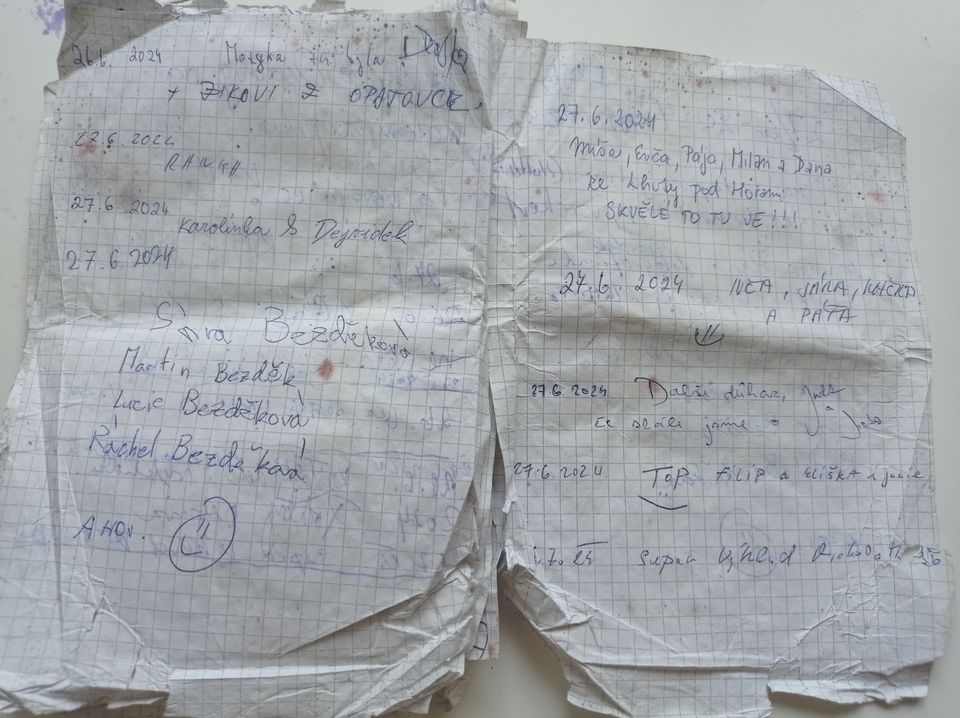 26.6. 2024 Motyka tu byla
+ ZIKOVI Z OPATOVCE
27.6.2024
27.6.2024
Karolínka & Dejvídek
27.6.2024
Sára Bezděková
Martin Bezděk
Lucie Bezděková
Ráchel Bezděková
AHOJ.
27.6.2024
Míša, Evča, Pája, Milan a Dana
ze Lhoty pod Horami
SKVĚLÉ TO TU JE!!!
27.6. 2024
A PÁŤA
27.6.2024 Další důkaz,
že stále jsme
27.6.2024 TOP FILIP a ELIŠKA
.7. 24 super výhled